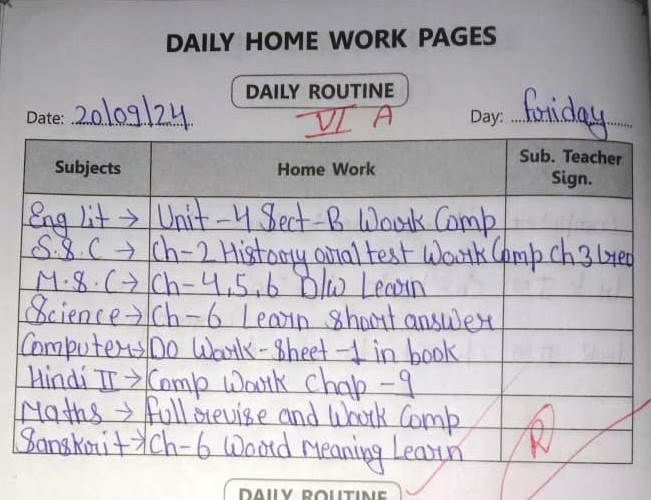 DAILY HOME WORK PAGES
DAILY ROUTINE
VI A
Date: 20/09/24 Day: Friday
Subjects Home Work Sub. Teacher Sign.
Eng lit → Unit-4 Sect-B Work Comp
S.S.C → Ch-2 History oral test Work Comp Ch 3
M.S.C → Ch-4,5,6 D/W Learn
Science → Ch-6 Learn Short answer
Computer → Do Work-Sheet-1 in book
Hindi II → Comp Work Chap-9
Maths → full revise and Work Comp
Sanskrit → Ch-6 Word Meaning Learn
R
DAILY ROUTINE